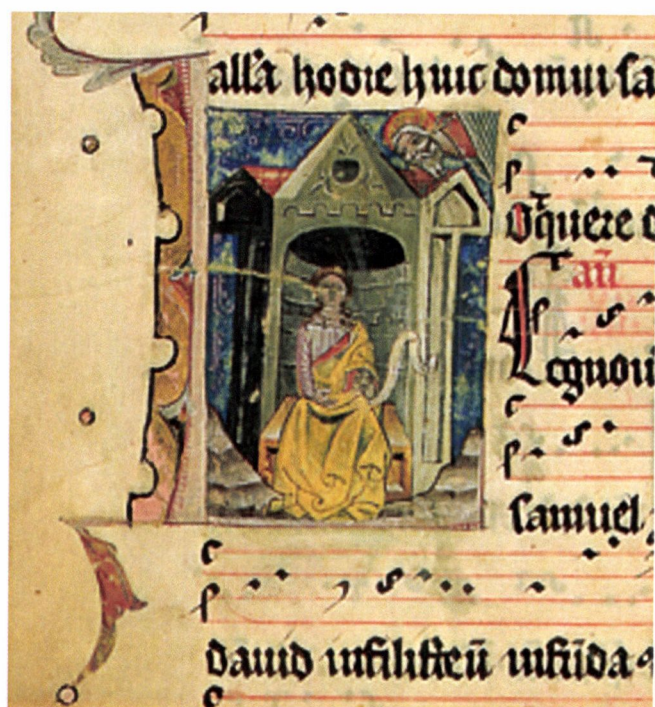 alta hodie huic domui sa
q̄rere d
añ
cgnou
samuel
dauid infilisteū infūda